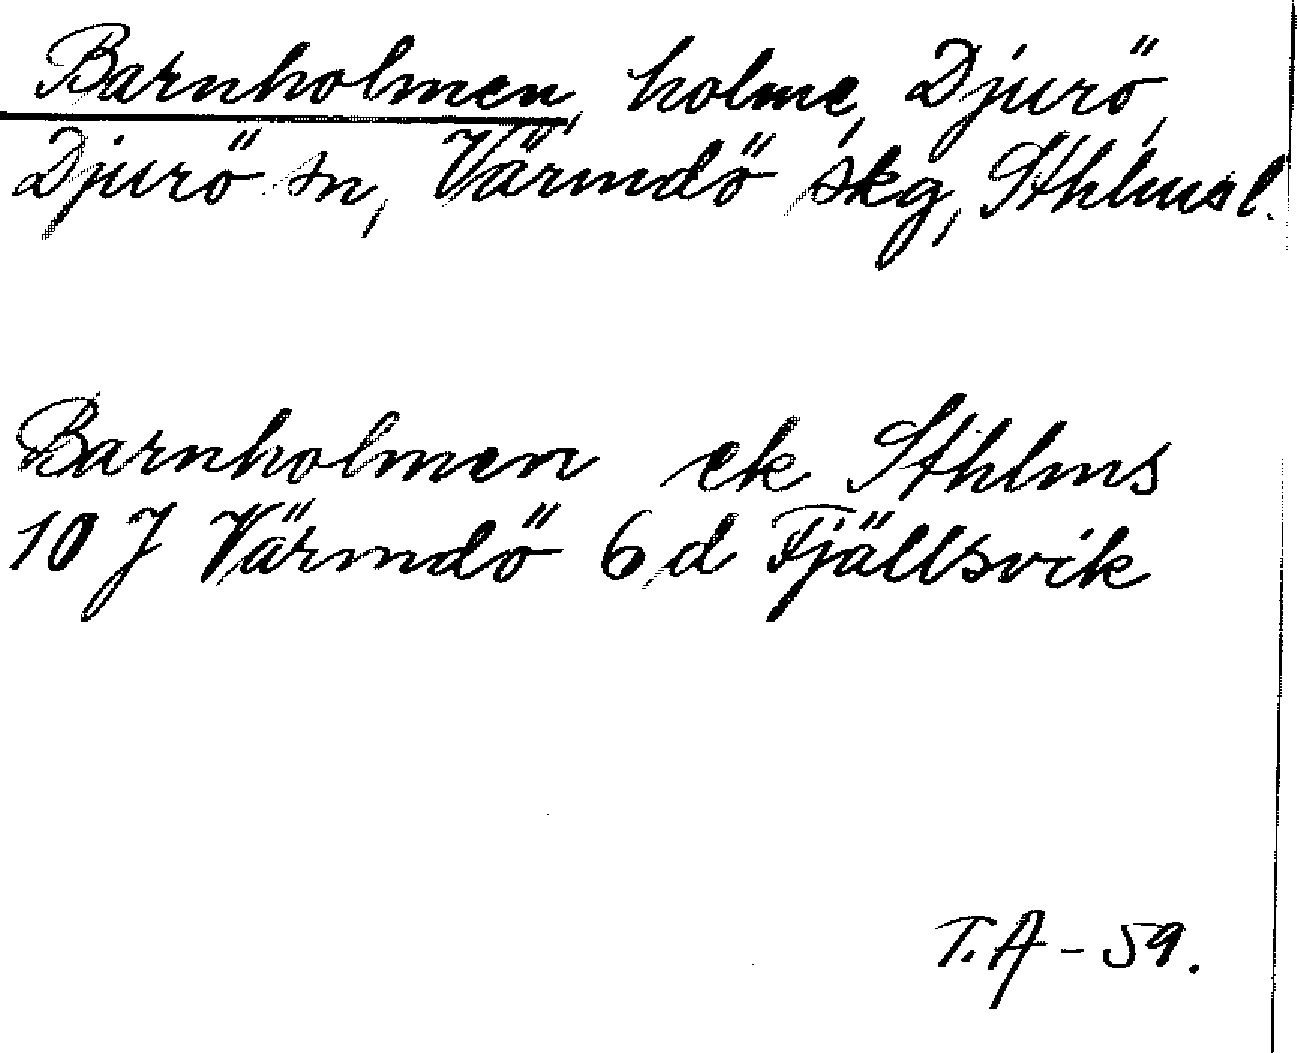 Barnholmen, holme, Djurö,
Djurö sn, Värmdö skg, Sthlmsl.
Barnholmen ek Sthlms
10 J Värmdö 6 d Fjällsvik
T.A - 59.